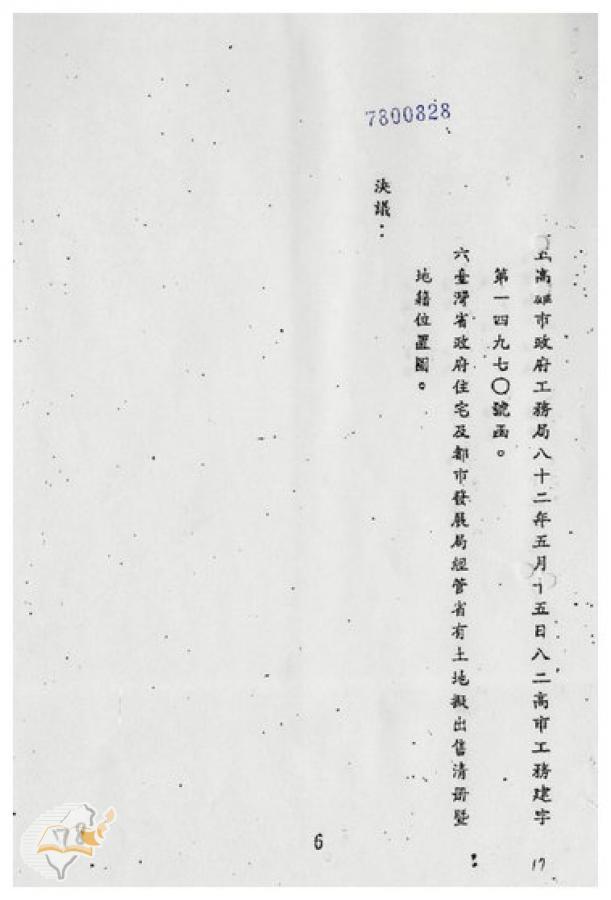 7800328
五高雄市政府工務局八十二年五月十五日八二高市工務建字
第一四九七〇號函。
六臺灣省政府住宅及都市發展局經管省有土地擬出售清册暨
地籍位置圖。
決議：
6
17
78